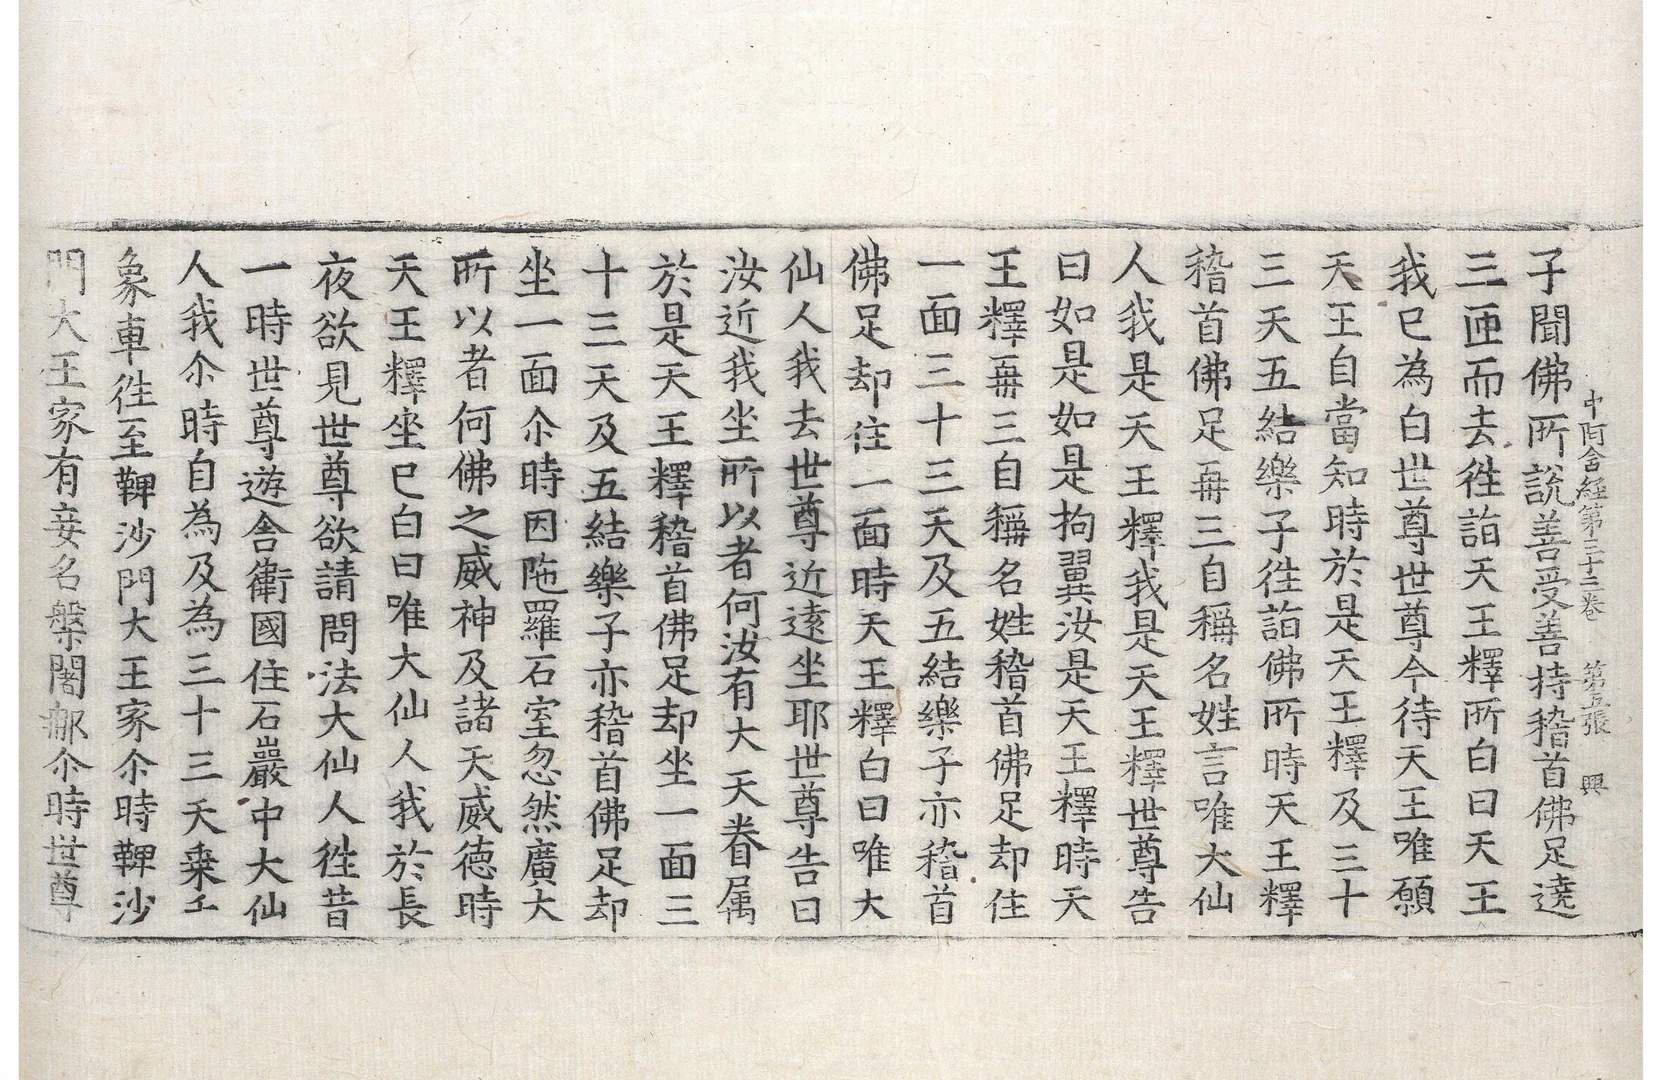 子聞佛所說善受善持稽首佛足遶
三匝而去徃詣天王釋所白曰天王
我已為白世尊世尊今待天王唯願
天王自當知時於是天王釋及三十
三天五結樂子徃詣佛所時天王釋
稽首佛足再三自稱名姓言唯大仙
人我是天王釋我是天王釋世尊告
曰如是如是拘翼汝是天王釋時天
王釋再三自稱名姓稽首佛足却住
一面三十三天及五結樂子亦稽首
佛足却住一面時天王釋白曰唯大
仙人我去世尊近遠坐耶世尊告曰
汝近我坐所以者何汝有大天眷属
於是天王釋稽首佛足却坐一面三
十三天及五結樂子亦稽首佛足却
坐一面尒時因陁羅石室忽然廣大
所以者何佛之威神及諸天威德時
天王釋坐已白曰唯大仙人我於長
夜欲見世尊欲請問法大仙人徃昔
一時世尊遊舍衛國住石巖中大仙
人我尒時自為及為三十三天乗千
象車徃至鞞沙門大王家尒時鞞沙
門大王家有妾名槃闍那尒時世尊
中阿含経第三十三卷 第五張 興